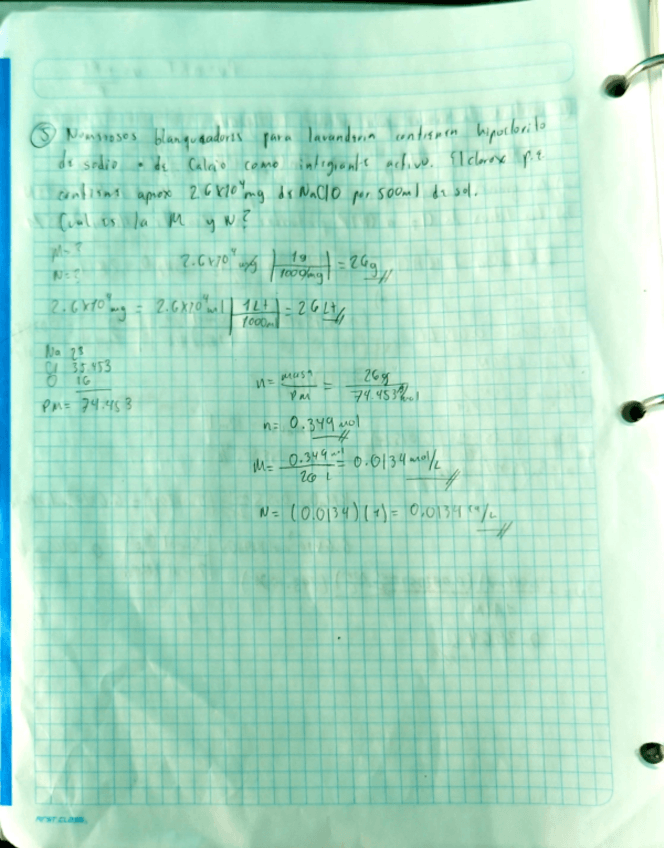 ⑤ Numerosos blanqueadores para lavandería contienen hipoclorito
de sodio o de Calcio como integrante activo. El clorox p.e.
contiene aprox 2.6x10⁴mg de NaClO por 500ml de sol.
Cual es la M y N?
M=?
N=?
2.6x10⁴ mg | 1g / 1000mg | = 26g
2.6x10⁴mg = 2.6x10⁴ml | 1Lt / 1000ml | = 26Lt
Na 23
Cl 35.453
O 16
PM= 74.453
n= masa / PM = 26g / 74.453g/mol
n= 0.349 mol
M= 0.349 mol / 26 L = 0.0134 mol/L
N= (0.0134)(1)= 0.0134 eq/L
FIRST CLASS